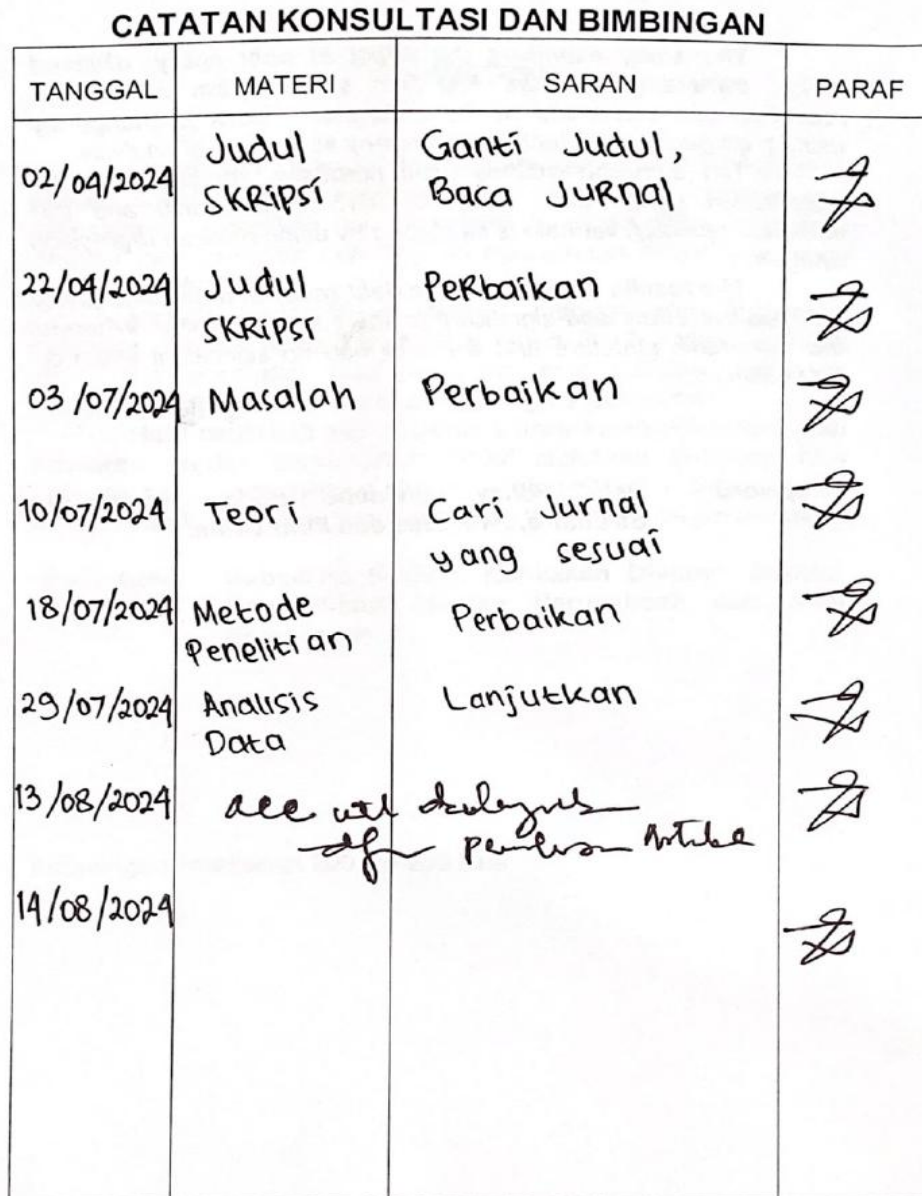 CATATAN KONSULTASI DAN BIMBINGAN
TANGGAL MATERI SARAN PARAF
02/04/2024 Judul SKRipsi Ganti Judul, Baca JURnal
22/04/2024 Judul SKRipsi PeRbaikan
03/07/2024 Masalah Perbaikan
10/07/2024 Teori Cari Jurnal yang sesuai
18/07/2024 Metode Penelitian Perbaikan
29/07/2024 Analisis Data Lanjutkan
13/08/2024 acc
14/08/2024